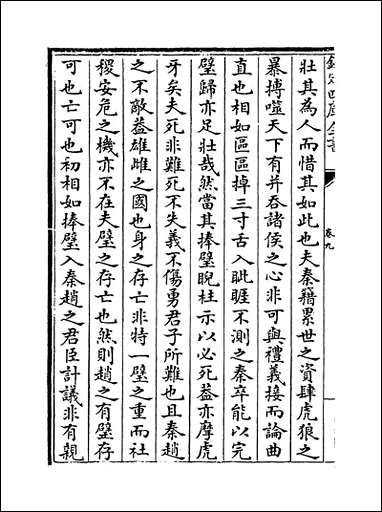 欽定四庫全書
卷九
壯其為人而惜其如此也夫秦藉累世之資肆虎狼之
暴搏噬天下有并吞諸侯之心非可與禮義接而論曲
直也相如區區掉三寸舌入眦睚不測之秦卒能以完
璧歸亦足壯哉然當其捧璧睨柱示以必死葢亦摩虎
牙矣夫死非難死不失義不傷勇君子所難也且秦趙
之不敵葢雄雌之國也身之存亡非特一璧之重而社
稷安危之機亦不在夫璧之存亡也然則趙之有璧存
可也亡可也初相如捧璧入秦趙之君臣計議非有親